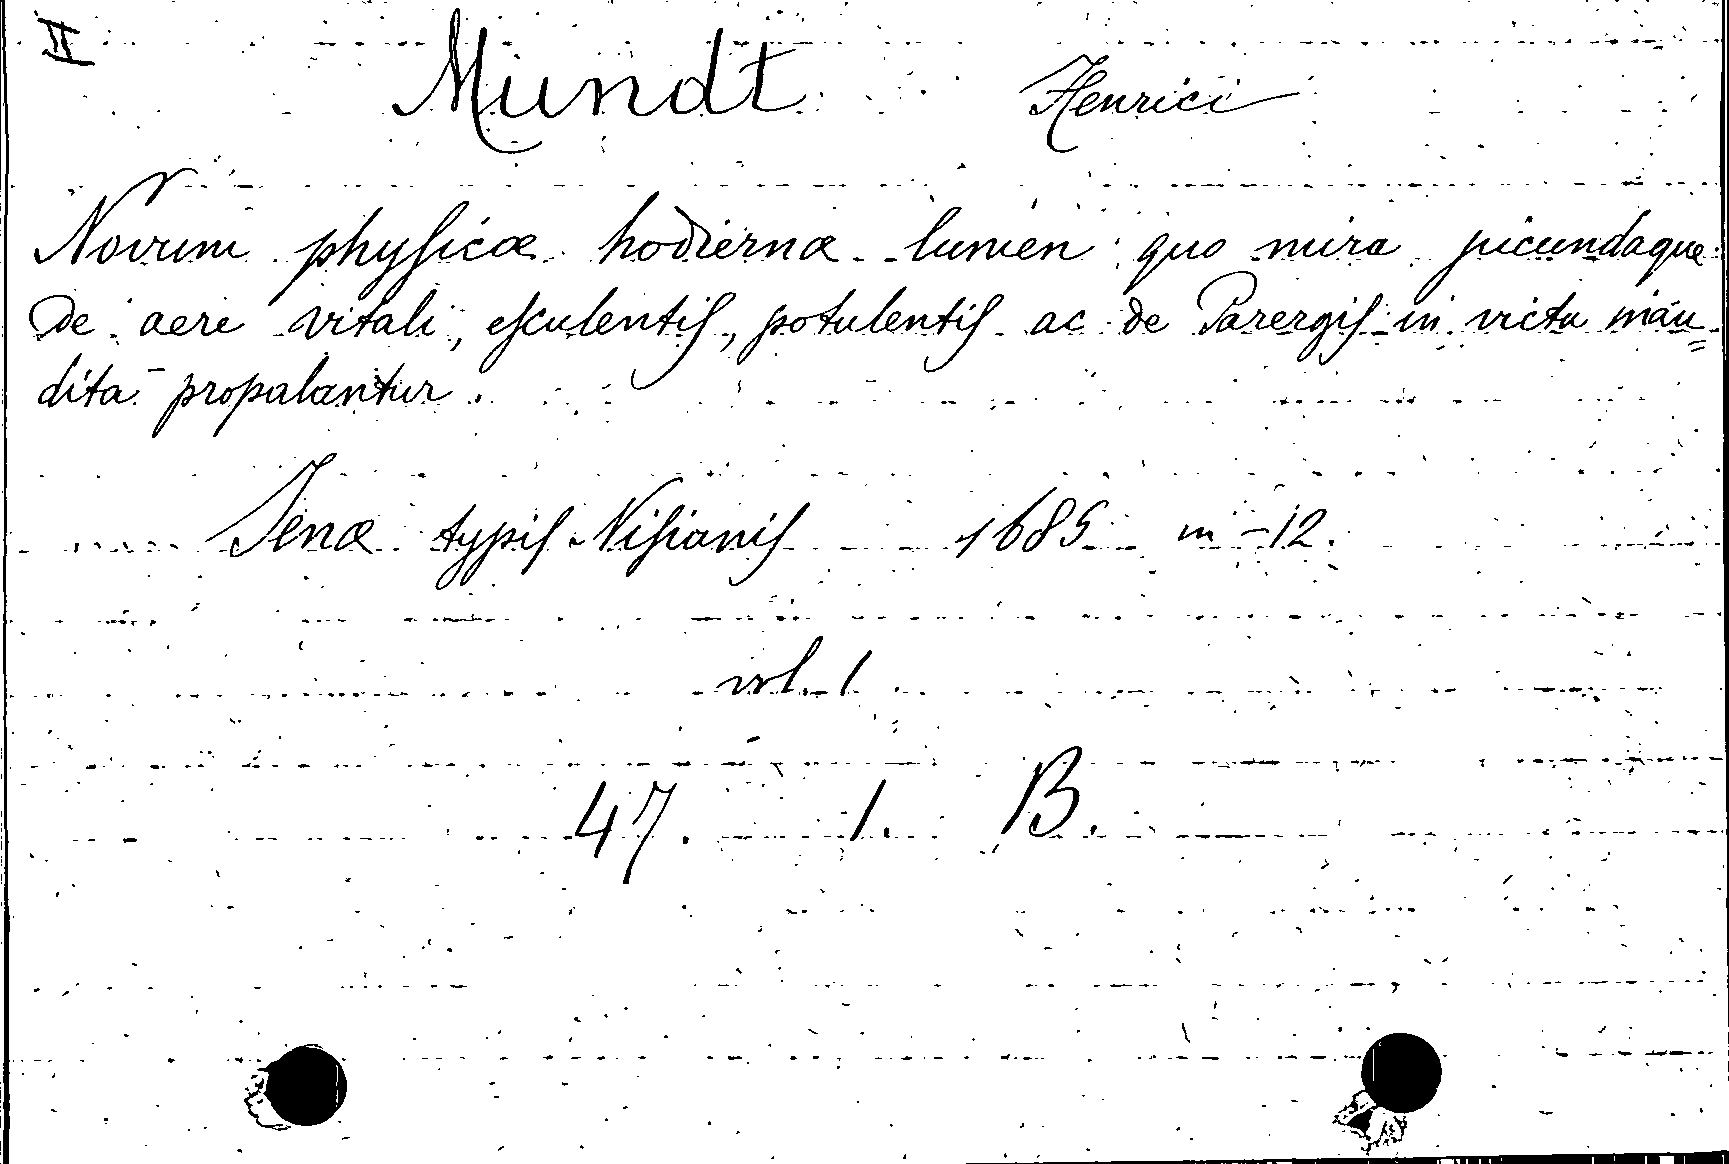 II
Mundt Henrici
Novum physicæ hodiernæ lumen quo mira jucundaque
de aere vitali, esculentis, potulentis ac de Parergis in victu inau=
dita propalantur.
Jenæ typis Nisianis 1685 in-12.
vol. 1
47. 1. B.